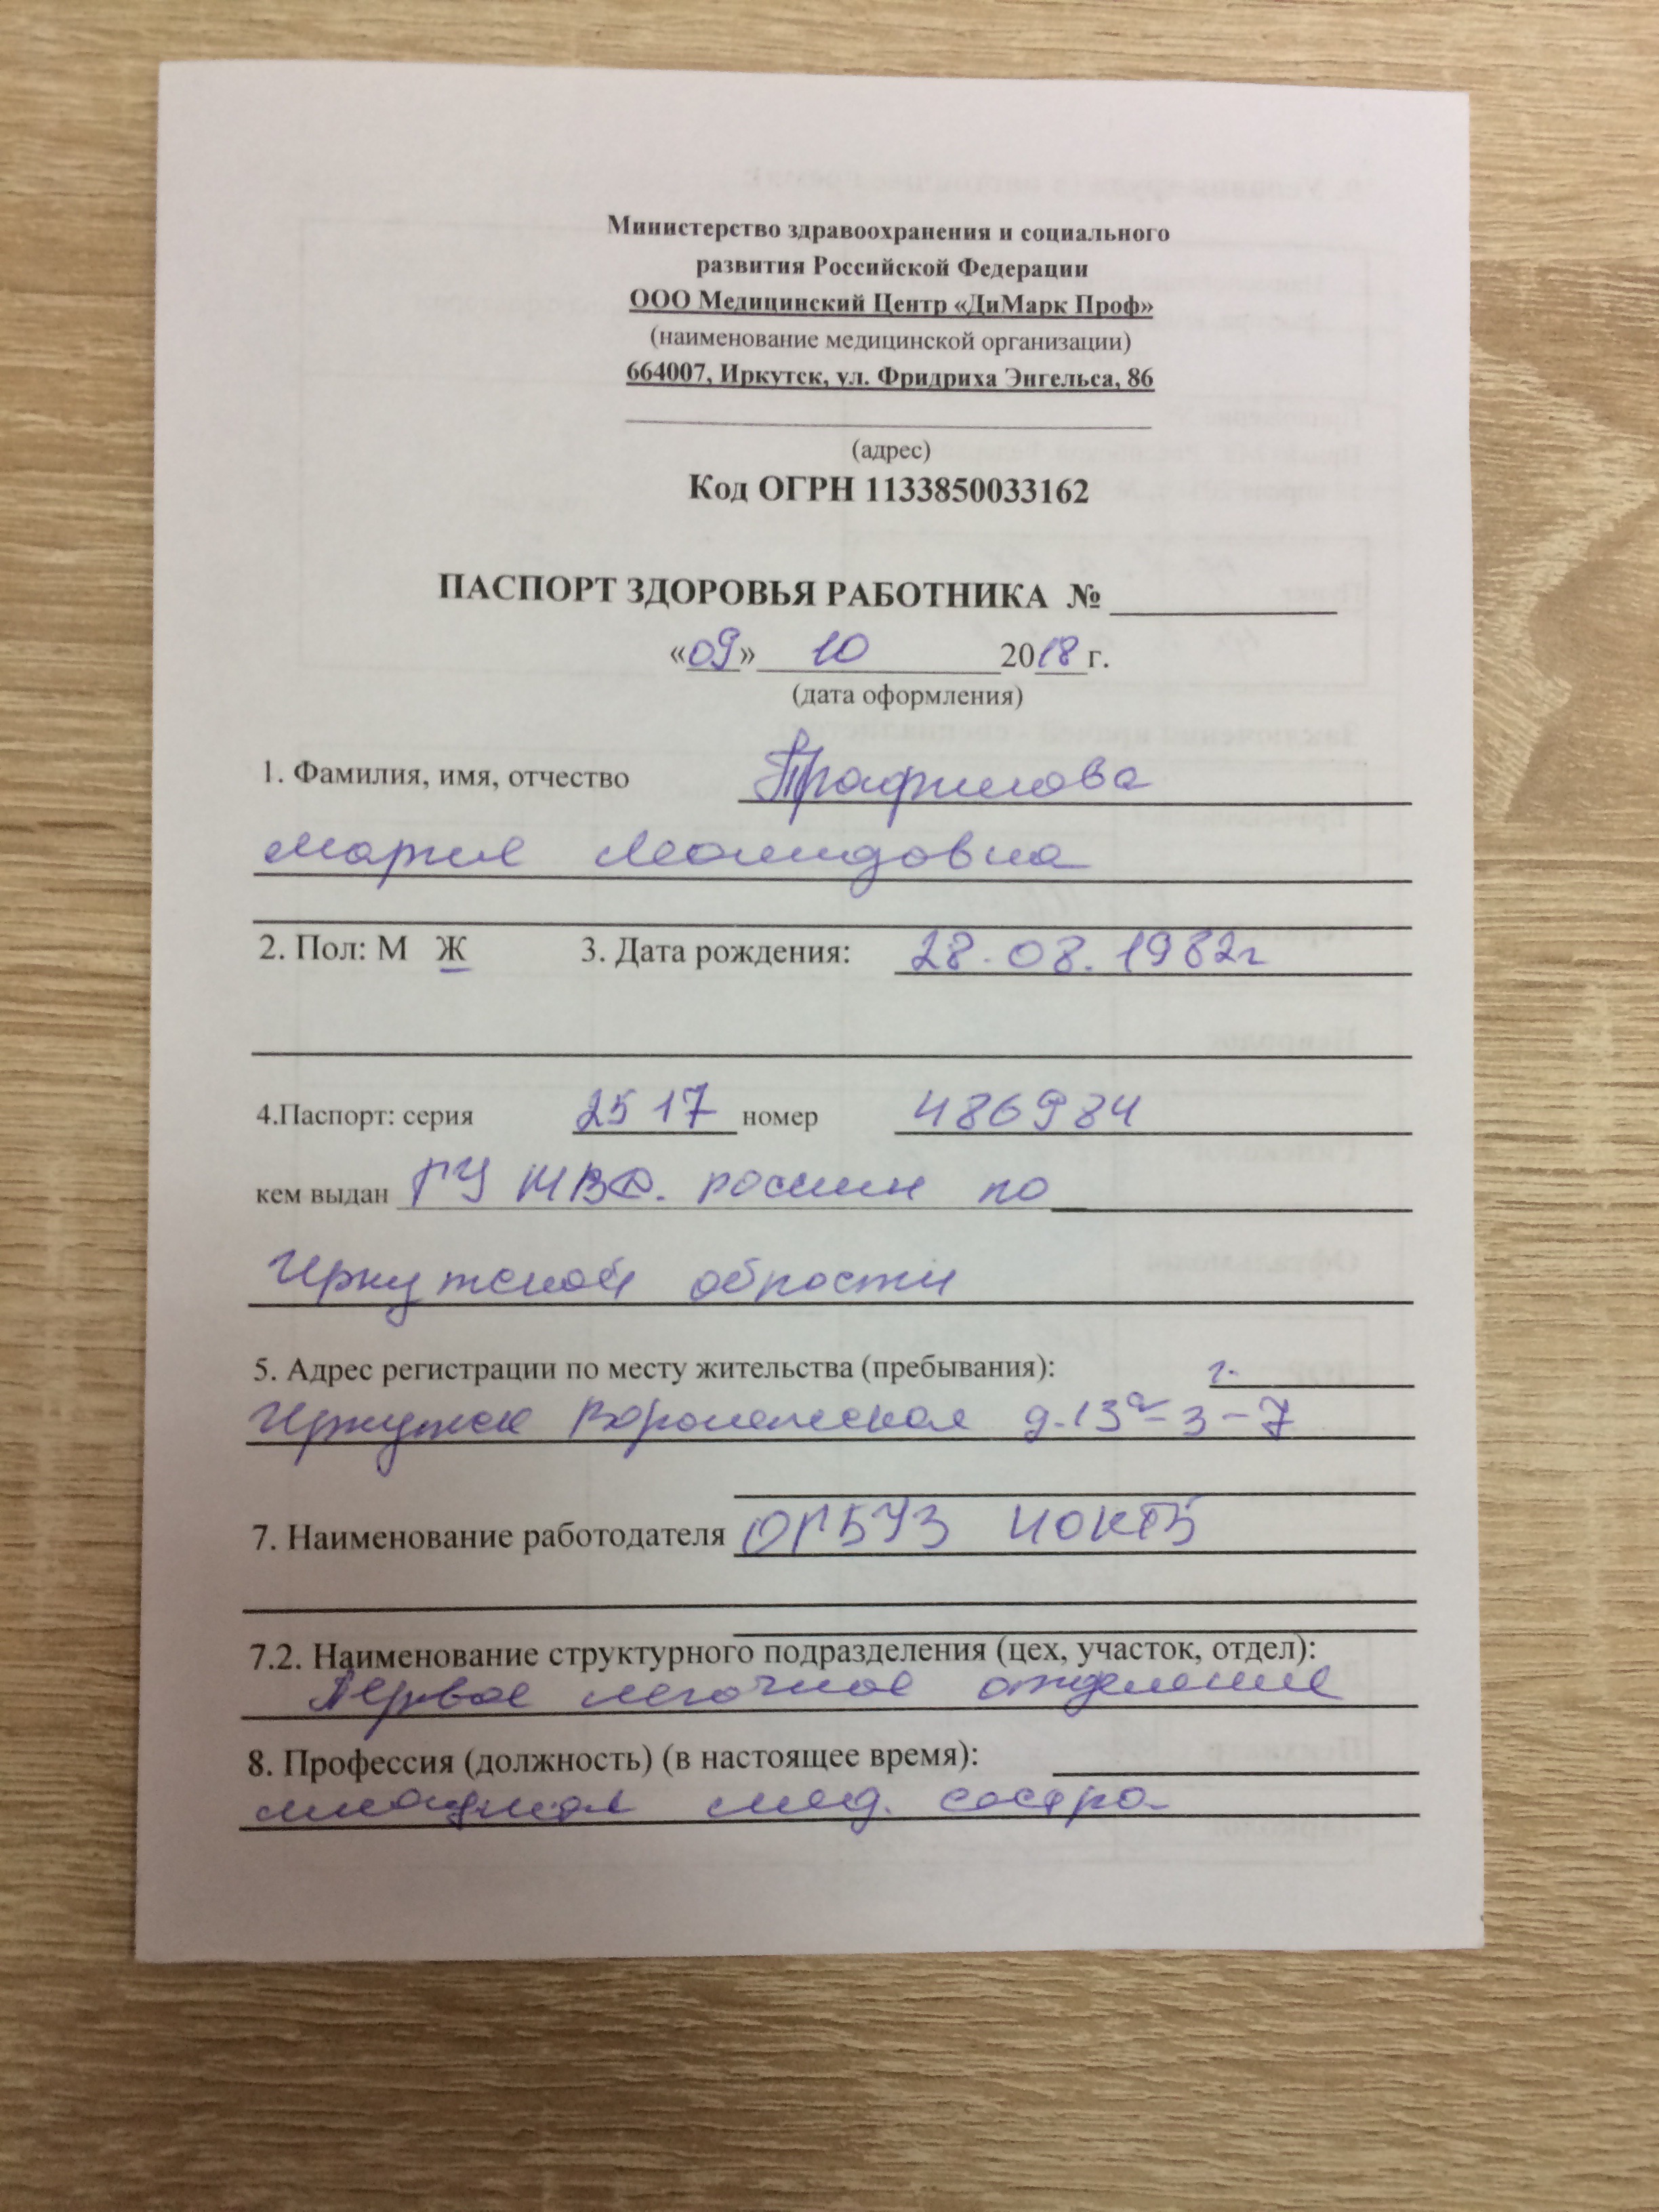 Министерство здравоохранения и социального
развития Российской Федерации
ООО Медицинский Центр «ДиМарк Проф»
(наименование медицинской организации)
664007, Иркутск, ул. Фридриха Энгельса, 86
(адрес)
Код ОГРН 1133850033162
ПАСПОРТ ЗДОРОВЬЯ РАБОТНИКА №
«09» 10 2018 г.
(дата оформления)
1. Фамилия, имя, отчество Трафилова
Мария Леонидовна
2. Пол: М Ж 3. Дата рождения: 28.08.1982г
4.Паспорт: серия 25 17 номер 486984
кем выдан ГУ МВД. россии по
Иркутской области
5. Адрес регистрации по месту жительства (пребывания): г.
Иркутск Воронежская д.13а-3-7
7. Наименование работодателя ОГБУЗ ИОКТБ
7.2. Наименование структурного подразделения (цех, участок, отдел):
Первое легочное отделение
8. Профессия (должность) (в настоящее время):
младшая мед. сестра